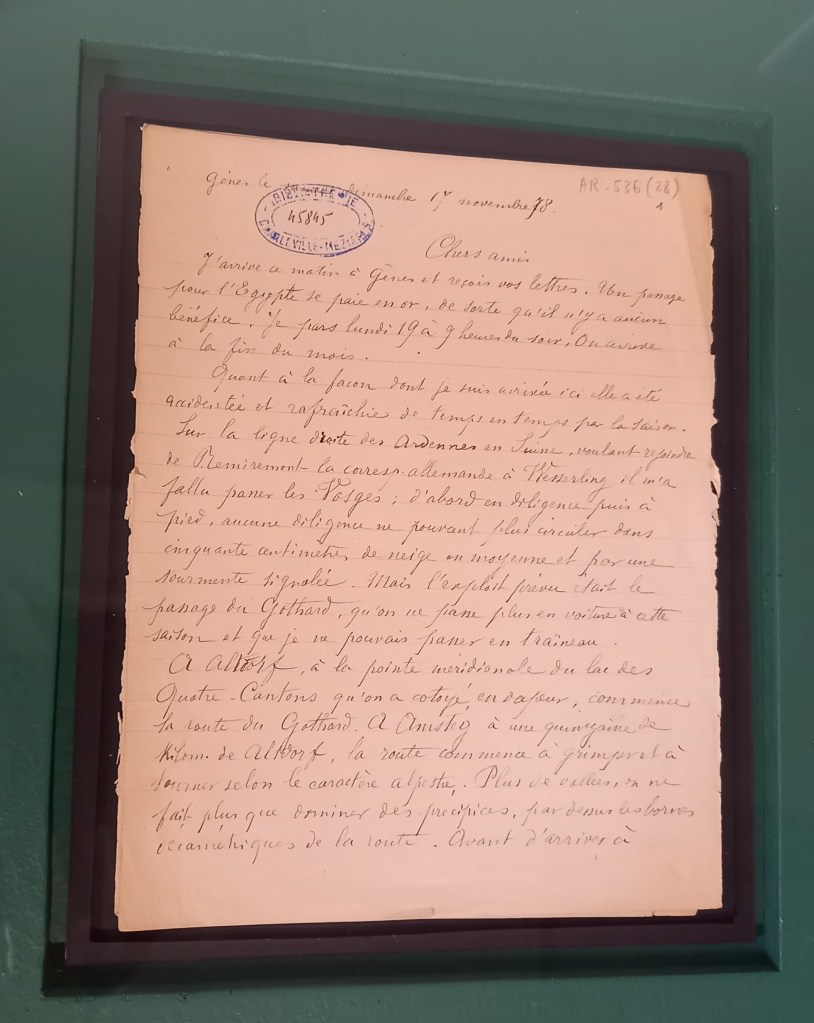 Gênes, le dimanche 17 novembre 78.
AR-536 (28)
1
BIBLIOTHEQUE
45845
CHARLEVILLE-MEZIERES
Chers amis
J'arrive ce matin à Gênes et reçois vos lettres. Un passage
pour l'Egypte se paie en or, de sorte qu'il n'y a aucun
bénéfice. Je pars lundi 19 à 9 heures du soir. On arrive
à la fin du mois.
Quant à la façon dont je suis arrivé ici elle a été
accidentée et rafraîchie de temps en temps par la saison.
Sur la ligne droite des Ardennes en Suisse, voulant rejoindre
de Remiremont la corresp. allemande à Wesserling, il m'a
fallu passer les Vosges ; d'abord en diligence puis à
pied, aucune diligence ne pouvant plus circuler dans
cinquante centimètres de neige en moyenne et par une
tourmente signalée. Mais l'exploit prévu était le
passage du Gothard, qu'on ne passe plus en voiture à cette
saison et que je ne pouvais passer en traîneau.
A Altdorf, à la pointe méridionale du lac des
Quatre-Cantons qu'on a cotoyé en vapeur, commence
la route du Gothard. A Amsteg à une quinzaine de
kilom. de Altdorf, la route commence à grimper et à
tourner selon le caractère alpestre. Plus de vallées, on ne
fait plus que dominer des précipices, par dessus les bornes
décamétriques de la route. Avant d'arriver à